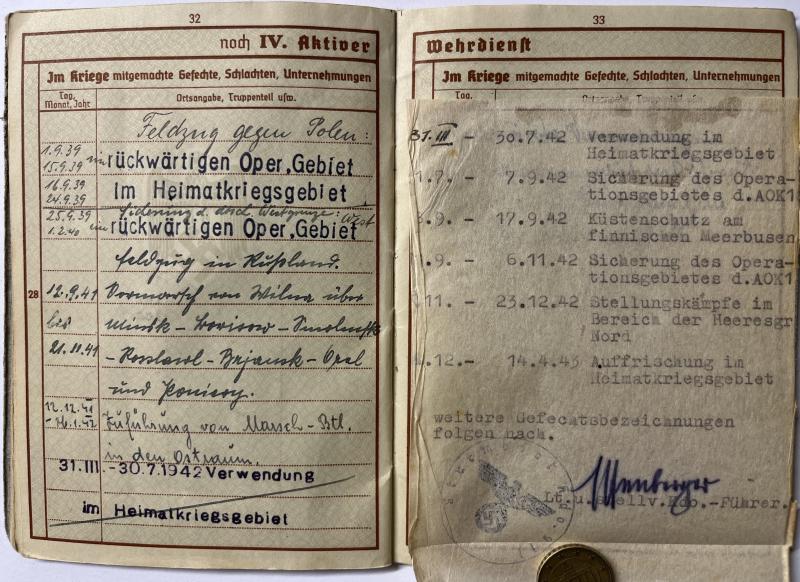 32
noch IV. Aktiver
Im Kriege mitgemachte Gefechte, Schlachten, Unternehmungen
Tag, Monat, Jahr
Ortsangabe, Truppenteil usw.
Feldzug gegen Polen:
1.9.39
15.9.39 im rückwärtigen Oper.Gebiet
16.9.39
24.9.39 Im Heimatkriegsgebiet,
25.9.39 Sicherung d. dtsch. Westgrenze:
1.2.40 im rückwärtigen Oper.Gebiet West
Feldzug in Rußland.
28
12.9.41 Vormarsch von Wilna über
bis Minsk – Borissow – Smolensk
21.11.41 – Rosslawl – Brjansk – Orel
und Poniery.
12.12.41
-16.1.42 Zuführung von Marsch-Btl.
in den Ostraum.
31.III. -30.7.1942 Verwendung
im Heimatkriegsgebiet
33
Wehrdienst
Im Kriege mitgemachte Gefechte, Schlachten, Unternehmungen
Tag,
31.III - 30.7.42 Verwendung im
Heimatkriegsgebiet
.7.- 7.9.42 Sicherung des Opera-
tionsgebietes d.AOK1
.9.- 17.9.42 Küstenschutz am
finnischen Meerbusen
.9.- 6.11.42 Sicherung des Opera-
tionsgebietes d.AOK1
.11.- 23.12.42 Stellungskämpfe im
Bereich der Heeresgr
Nord
.12.- 14.4.43 Auffrischung im
Heimatkriegsgebiet
weitere Gefechtsbezeichnungen
folgen nach.
Lt.u.stellv.Kdo.-Führer.